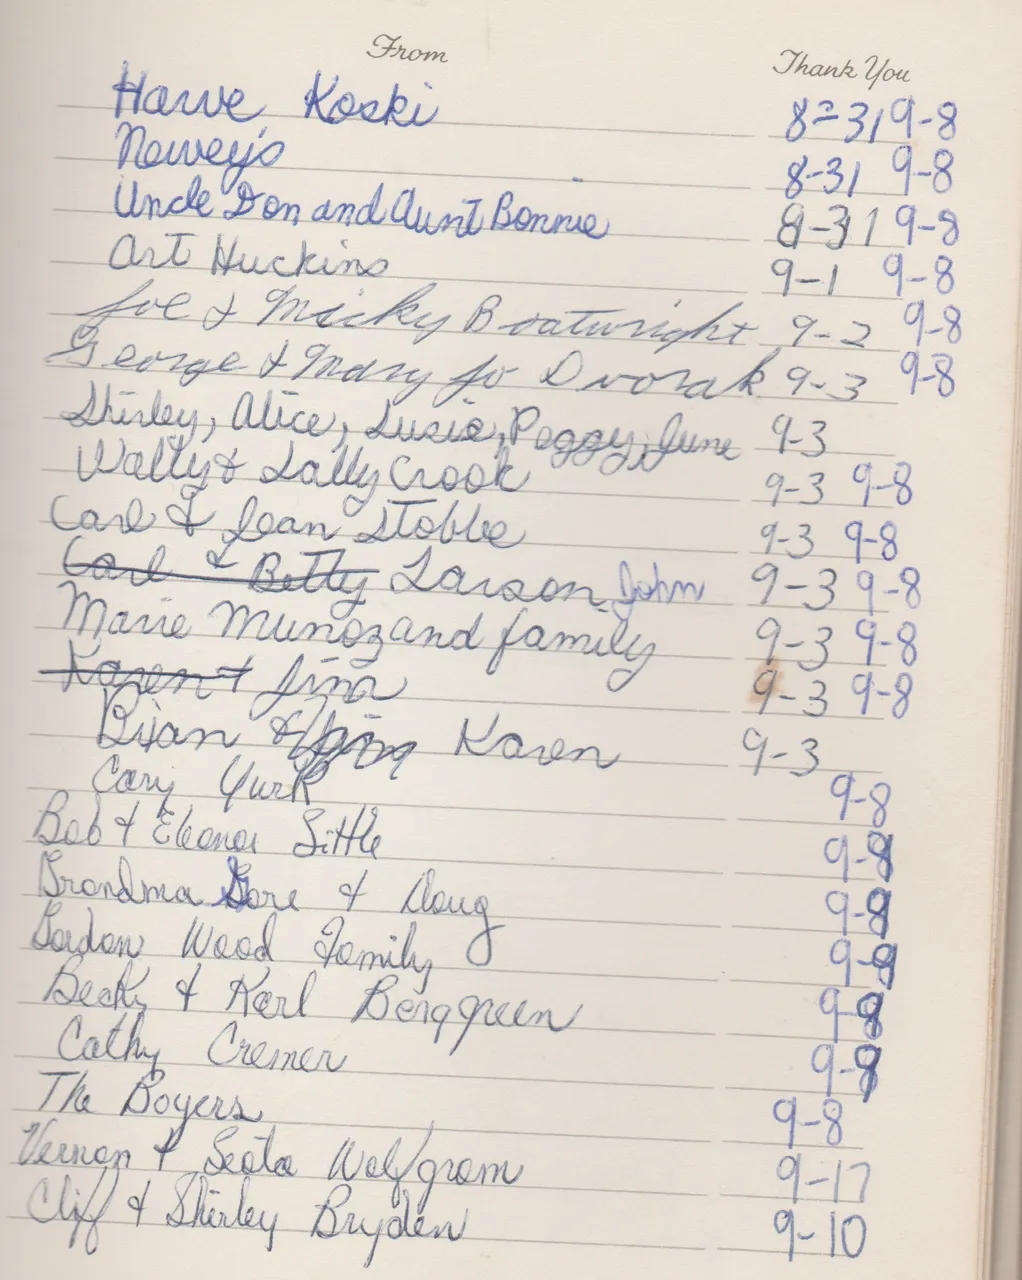 From Thank You
Harve Koski 8-31 9-8
Newey's 8-31 9-8
Uncle Don and Aunt Bonnie 8-31 9-8
Art Huckins 9-1 9-8
Joe & Micky Boatwright 9-2 9-8
George & Mary Jo Dvorak 9-3 9-8
Shirley, Alice, Susie, Peggy, June 9-3
Wally & Sally Crook 9-3 9-8
Carl & Jean Stobbe 9-3 9-8
Carl & Betty Larson John 9-3 9-8
Marie Munoz and family 9-3 9-8
Karen & Jina 9-3 9-8
Brian & Karen 9-3
Cary Yurk 9-8
Bob & Eleanor Little 9-8
Grandma Gore & Doug 9-8
Gordon Wood Family 9-9
Becky & Karl Berggreen 9-8
Cathy Cremer 9-8
The Boyers 9-8
Vernon & Leota Wolfgram 9-17
Cliff & Shirley Bryden 9-10